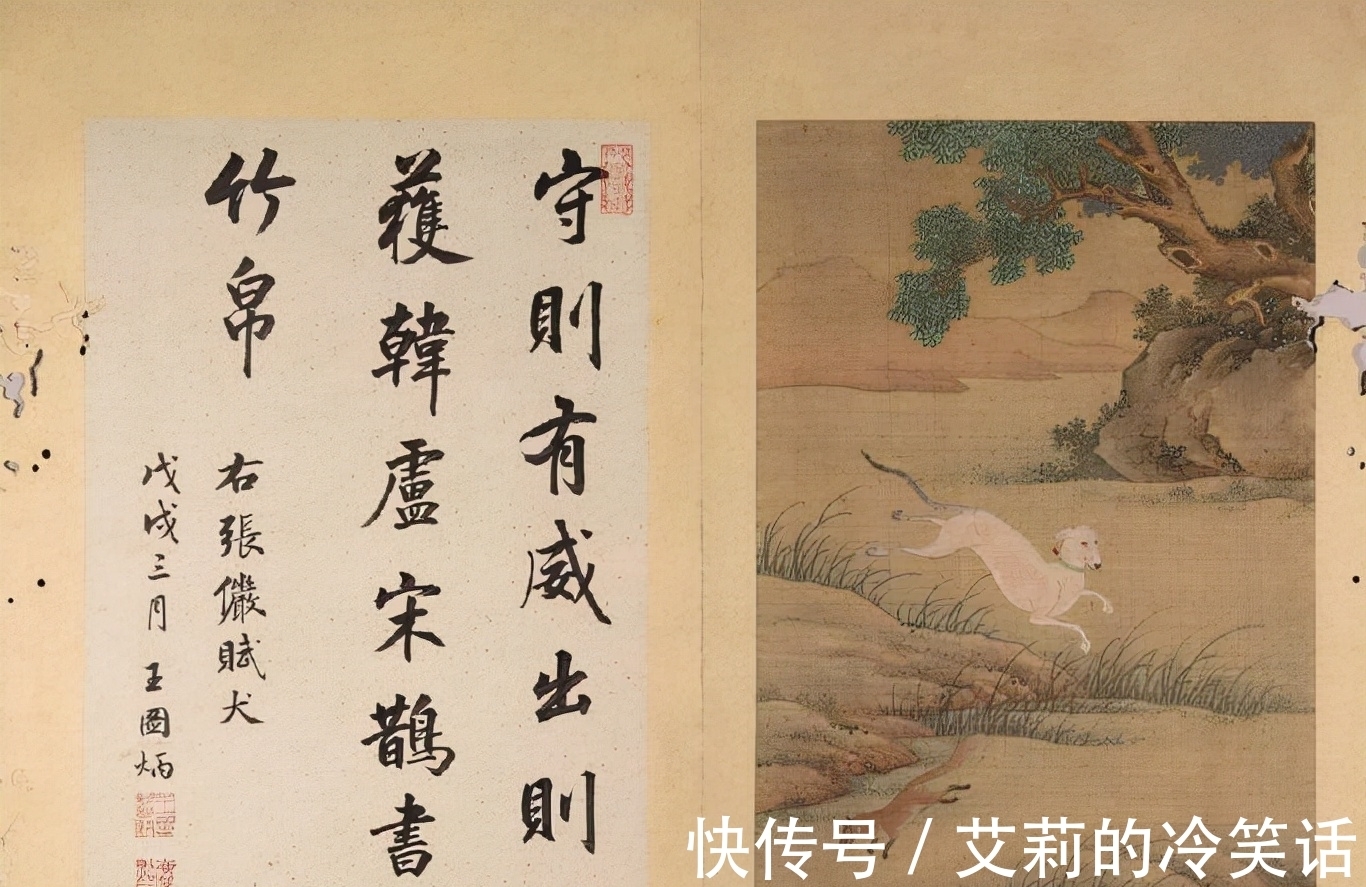 守則有威出則
獲韓盧宋鵲書
竹帛
右張儼賦犬
戊戌三月王圖炳
快传号 / 艾莉的冷笑话